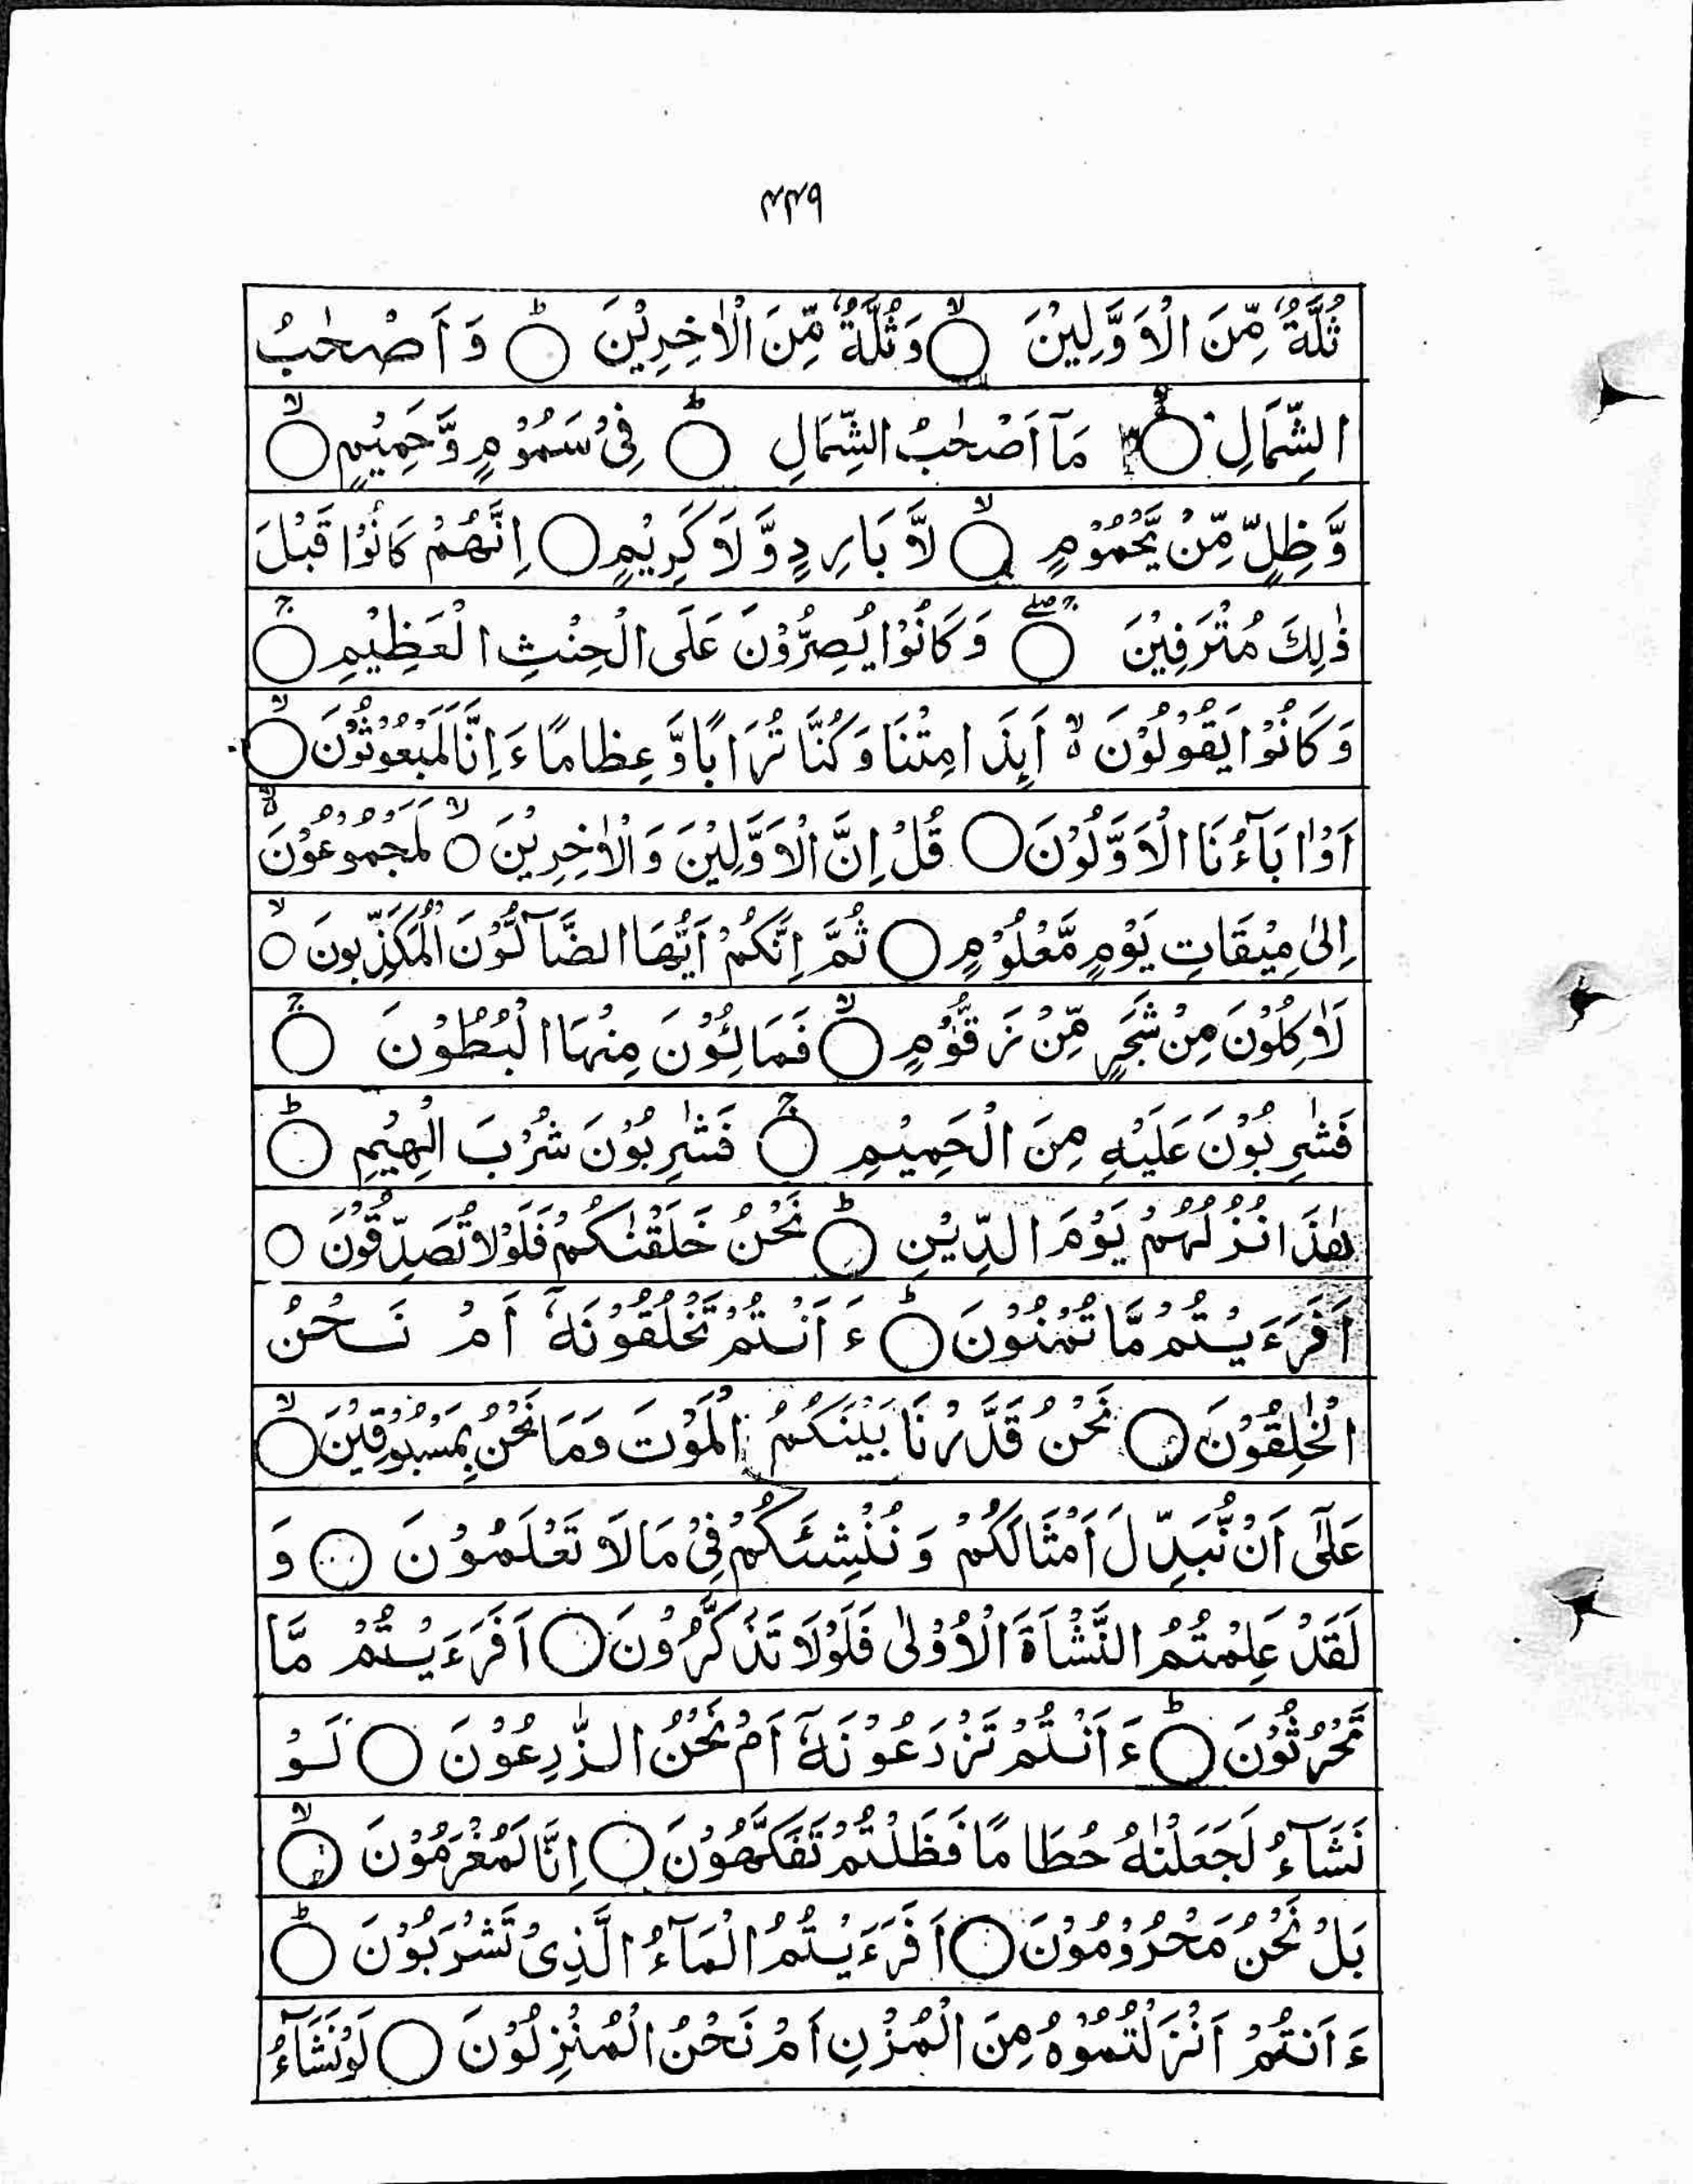 ۴۴۹
ثُلَّةٌ مِّنَ الْاَوَّلِيْنَ ۙ○ وَثُلَّةٌ مِّنَ الْاٰخِرِيْنَ ؕ○ وَ اَصْحٰبُ
الشِّمَالِ ○ مَاۤ اَصْحٰبُ الشِّمَالِ ؕ○ فِىْ سَمُوْمٍ وَّحَمِيْمٍ ۙ○
وَّظِلٍّ مِّنْ يَّحْمُوْمٍ ۙ○ لَّا بَارِدٍ وَّلَا كَرِيْمٍ ○ اِنَّهُمْ كَانُوْا قَبْلَ
ذٰلِكَ مُتْرَفِيْنَ ۚۖ○ وَكَانُوْا يُصِرُّوْنَ عَلَى الْحِنْثِ الْعَظِيْمِ ۚ○
وَكَانُوْا يَقُوْلُوْنَ ۙ۬ اَئِذَا مِتْنَا وَكُنَّا تُرَابًا وَّعِظَامًا ءَاِنَّا لَمَبْعُوْثُوْنَ ۙ○
اَوَاٰبَآءُنَا الْاَوَّلُوْنَ ○ قُلْ اِنَّ الْاَوَّلِيْنَ وَالْاٰخِرِيْنَ ۙ○ لَمَجْمُوْعُوْنَ
اِلٰى مِيْقَاتِ يَوْمٍ مَّعْلُوْمٍ ○ ثُمَّ اِنَّكُمْ اَيُّهَا الضَّآلُّوْنَ الْمُكَذِّبُوْنَ ۙ○
لَاٰكِلُوْنَ مِنْ شَجَرٍ مِّنْ زَقُّوْمٍ ۙ○ فَمَالِئُوْنَ مِنْهَا الْبُطُوْنَ ۚ○
فَشٰرِبُوْنَ عَلَيْهِ مِنَ الْحَمِيْمِ ۚ○ فَشٰرِبُوْنَ شُرْبَ الْهِيْمِ ؕ○
هٰذَا نُزُلُهُمْ يَوْمَ الدِّيْنِ ؕ○ نَحْنُ خَلَقْنٰكُمْ فَلَوْلَا تُصَدِّقُوْنَ ○
اَفَرَءَيْتُمْ مَّا تُمْنُوْنَ ؕ○ ءَاَنْتُمْ تَخْلُقُوْنَهٗۤ اَمْ نَحْنُ
الْخٰلِقُوْنَ ○ نَحْنُ قَدَّرْنَا بَيْنَكُمُ الْمَوْتَ وَمَا نَحْنُ بِمَسْبُوْقِيْنَ ۙ○
عَلٰۤى اَنْ نُّبَدِّلَ اَمْثَالَكُمْ وَنُنْشِئَكُمْ فِىْ مَا لَا تَعْلَمُوْنَ ○ وَ
لَقَدْ عَلِمْتُمُ النَّشْاَةَ الْاُوْلٰى فَلَوْلَا تَذَكَّرُوْنَ ○ اَفَرَءَيْتُمْ مَّا
تَحْرُثُوْنَ ؕ○ ءَاَنْتُمْ تَزْرَعُوْنَهٗۤ اَمْ نَحْنُ الزّٰرِعُوْنَ ○ لَوْ
نَشَآءُ لَجَعَلْنٰهُ حُطَامًا فَظَلْتُمْ تَفَكَّهُوْنَ ○ اِنَّا لَمُغْرَمُوْنَ ۙ○
بَلْ نَحْنُ مَحْرُوْمُوْنَ ○ اَفَرَءَيْتُمُ الْمَآءَ الَّذِىْ تَشْرَبُوْنَ ؕ○
ءَاَنْتُمْ اَنْزَلْتُمُوْهُ مِنَ الْمُزْنِ اَمْ نَحْنُ الْمُنْزِلُوْنَ ○ لَوْ نَشَآءُ